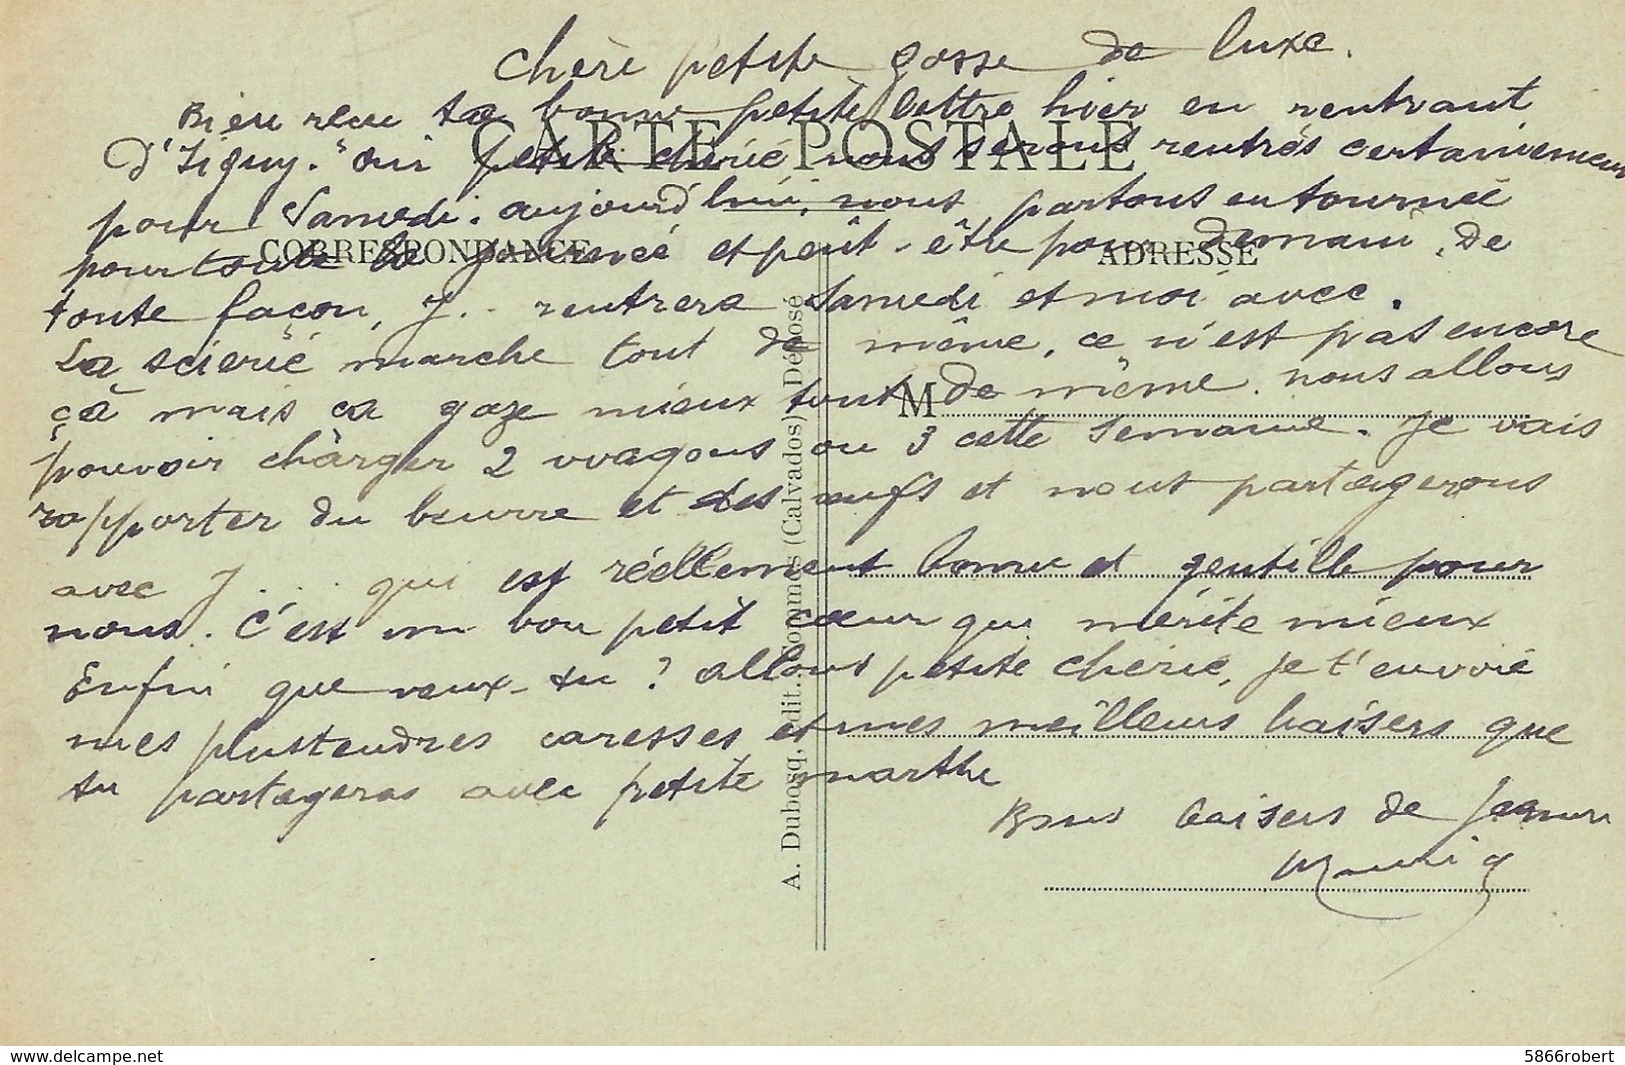 Chère petite gosse de luxe.
Bien recu ta bonne petite lettre hier en rentrant
CARTE POSTALE
d'Isigny. oui petite chérie, nous serons rentrés certainement
pour Samedi. aujourd'hui, nous partons en tournée
CORRESPONDANCE
ADRESSE
pour toute la journée et peut-être pour demain. De
toute façon, J... rentrera Samedi et moi avec.
La scierie marche tout de même, ce n'est pas encore
ça mais ca gaze mieux tout de même. nous allons
M
pouvoir charger 2 wagons ou 3 cette semaine. Je vais
rapporter du beurre et des œufs et nous partagerons
avec J... qui est réellement bonne et gentille pour
nous. C'est un bon petit cœur qui mérite mieux
Enfin que veux-tu? allons petite chérie, je t'envoie
mes plus tendres caresses et mes meilleurs baisers que
tu partageras avec petite marthe
Bons baisers de
A. Dubosq, édit., (Calvados) Déposé
5866robert